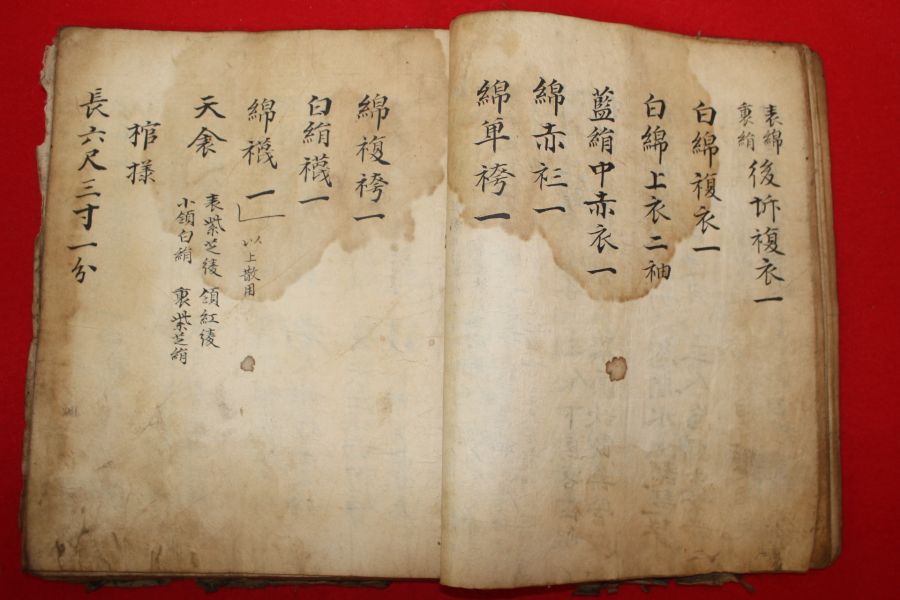 表綿
裏絹
後坼複衣一
白綿複衣一
白綿上衣二袖
藍絹中赤衣一
綿赤衫一
綿單袴一
綿複袴一
白絹襪一
綿襪一
以上散用
天衾
表紫芝綾 領紅綾
小領白絹 裏紫芝絹
棺樣
長六尺三寸一分